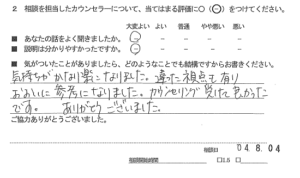 2 相談を担当したカウンセラーについて、当てはまる評価に○(○)をつけてください。
大変よい よい 普通 やや悪い 悪い
■ あなたの話をよく聞きましたか。
■ 説明は分かりやすかったですか。
■ 気がついたことがありましたら、どのようなことでも結構ですからお書きください。
気持ちがかなり楽になりました。違った視点も有り
おおいに参考になりました。カウンセリング受けて良かった
です。 ありがとうございました。
ご協力ありがとうございました。
相談日 04.8.04